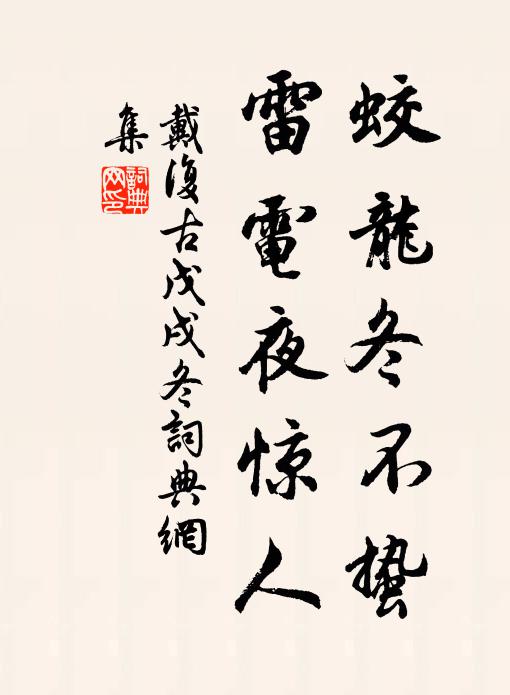 蛟龍冬不蟄
雷電夜惊人
戴復古戊戌冬詞典網
集
詞典网印